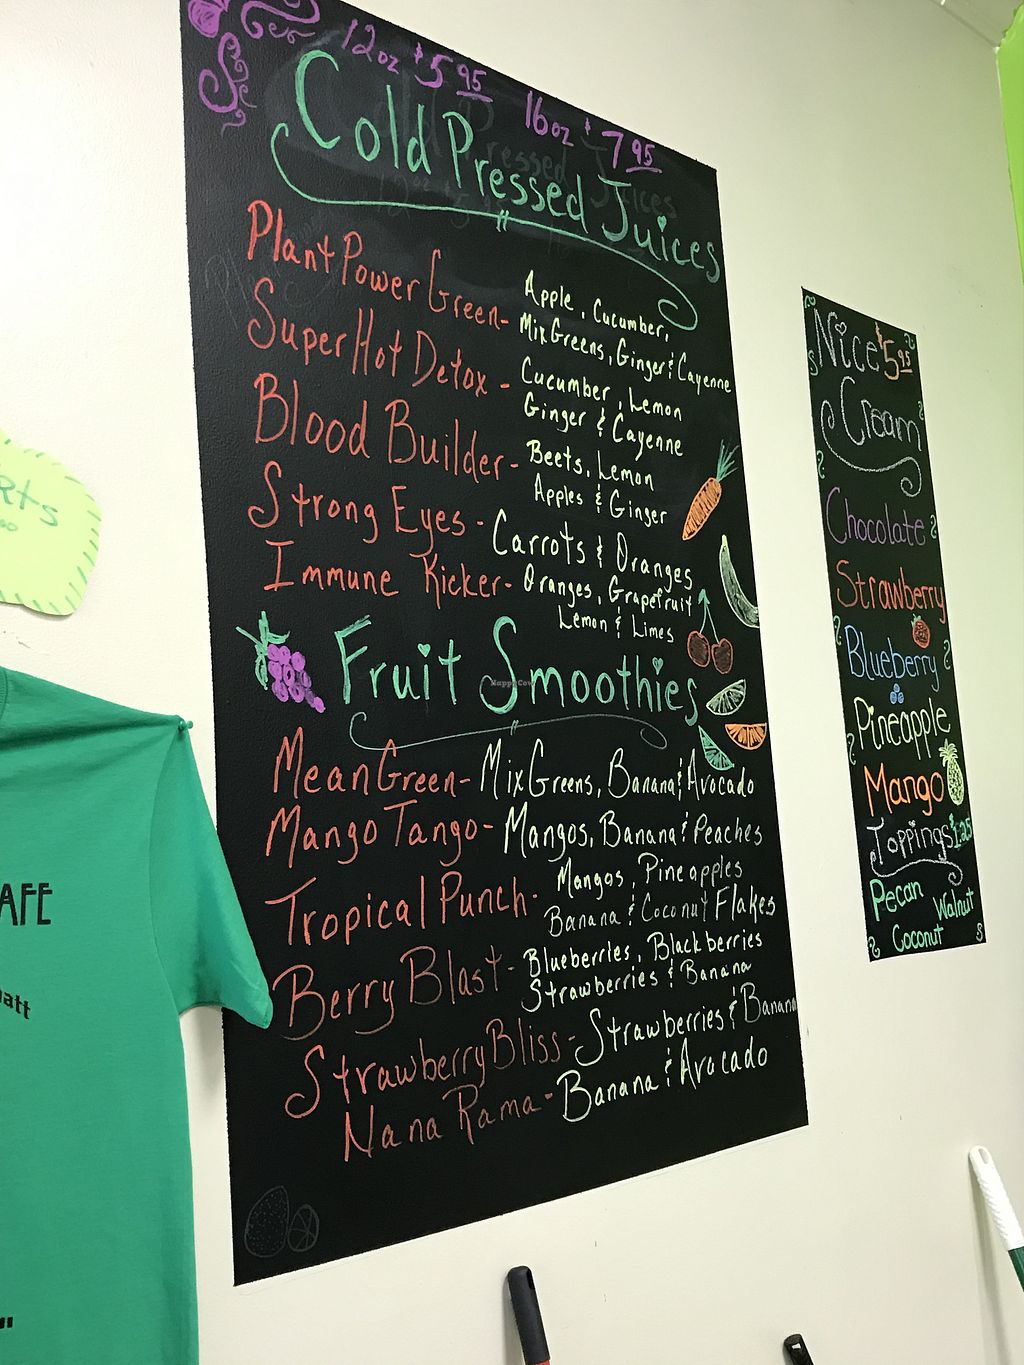 12oz $5.95 16oz $7.95
Cold Pressed Juices
Plant Power Green - Apple, Cucumber,
Mix Greens, Ginger & Cayenne
Super Hot Detox - Cucumber, Lemon
Ginger & Cayenne
Blood Builder - Beets, Lemon
Apples & Ginger
Strong Eyes - Carrots & Oranges
Immune Kicker - Oranges, Grapefruit
Lemon & Limes
Fruit Smoothies
HappyCow
Mean Green - Mix Greens, Banana & Avocado
Mango Tango - Mangos, Banana & Peaches
Tropical Punch - Mangos, Pineapples
Banana & Coconut Flakes
Berry Blast - Blueberries, Blackberries
Strawberries & Banana
Strawberry Bliss - Strawberries & Banana
Nana Rama - Banana & Avocado
Nice $5.95
Cream
Chocolate
Strawberry
Blueberry
Pineapple
Mango
Toppings $1.25
Pecan
Walnut
Coconut
AFE
att